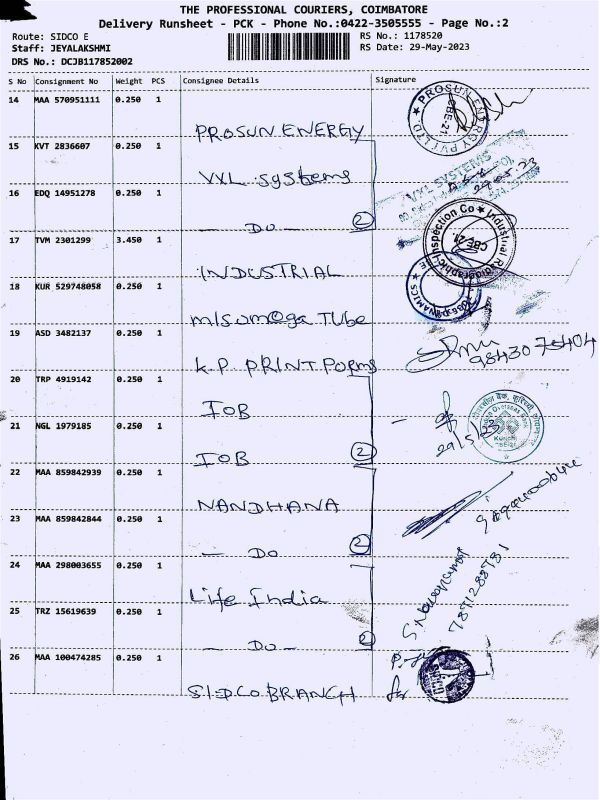 THE PROFESSIONAL COURIERS, COIMBATORE
Delivery Runsheet - PCK - Phone No.:0422-3505555 - Page No.:2
Route: SIDCO E RS No.: 1178520
Staff: JEYALAKSHMI RS Date: 29-May-2023
DRS No.: DCJB117852002
S No Consignment No Weight PCS Consignee Details Signature
14 MAA 570951111 0.250 1
PROSUN ENERGY
PROSUN ENERGY PVT LTD CBE-21
15 KVT 2836607 0.250 1
VXL systems
VXL SYSTEMS
16 EDQ 14951278 0.250 1
- Do - 2
17 TVM 2301299 3.450 1
INDUSTRIAL
Industrial Radiographic Inspection Co CBE-21.
18 KUR 529748058 0.250 1
M/s omega TUbe
19 ASD 3482137 0.250 1
K.P. PRINT FORMS
9843075404
20 TRP 4919142 0.250 1
IOB
21 NGL 1979185 0.250 1
IOB 2
29/5/23
22 MAA 859842939 0.250 1
NANDHANA
23 MAA 859842844 0.250 1
- Do 2
24 MAA 298003655 0.250 1
Life India
25 TRZ 15619639 0.250 1
- Do - 2
26 MAA 100474285 0.250 1
SIDCO BRANCH